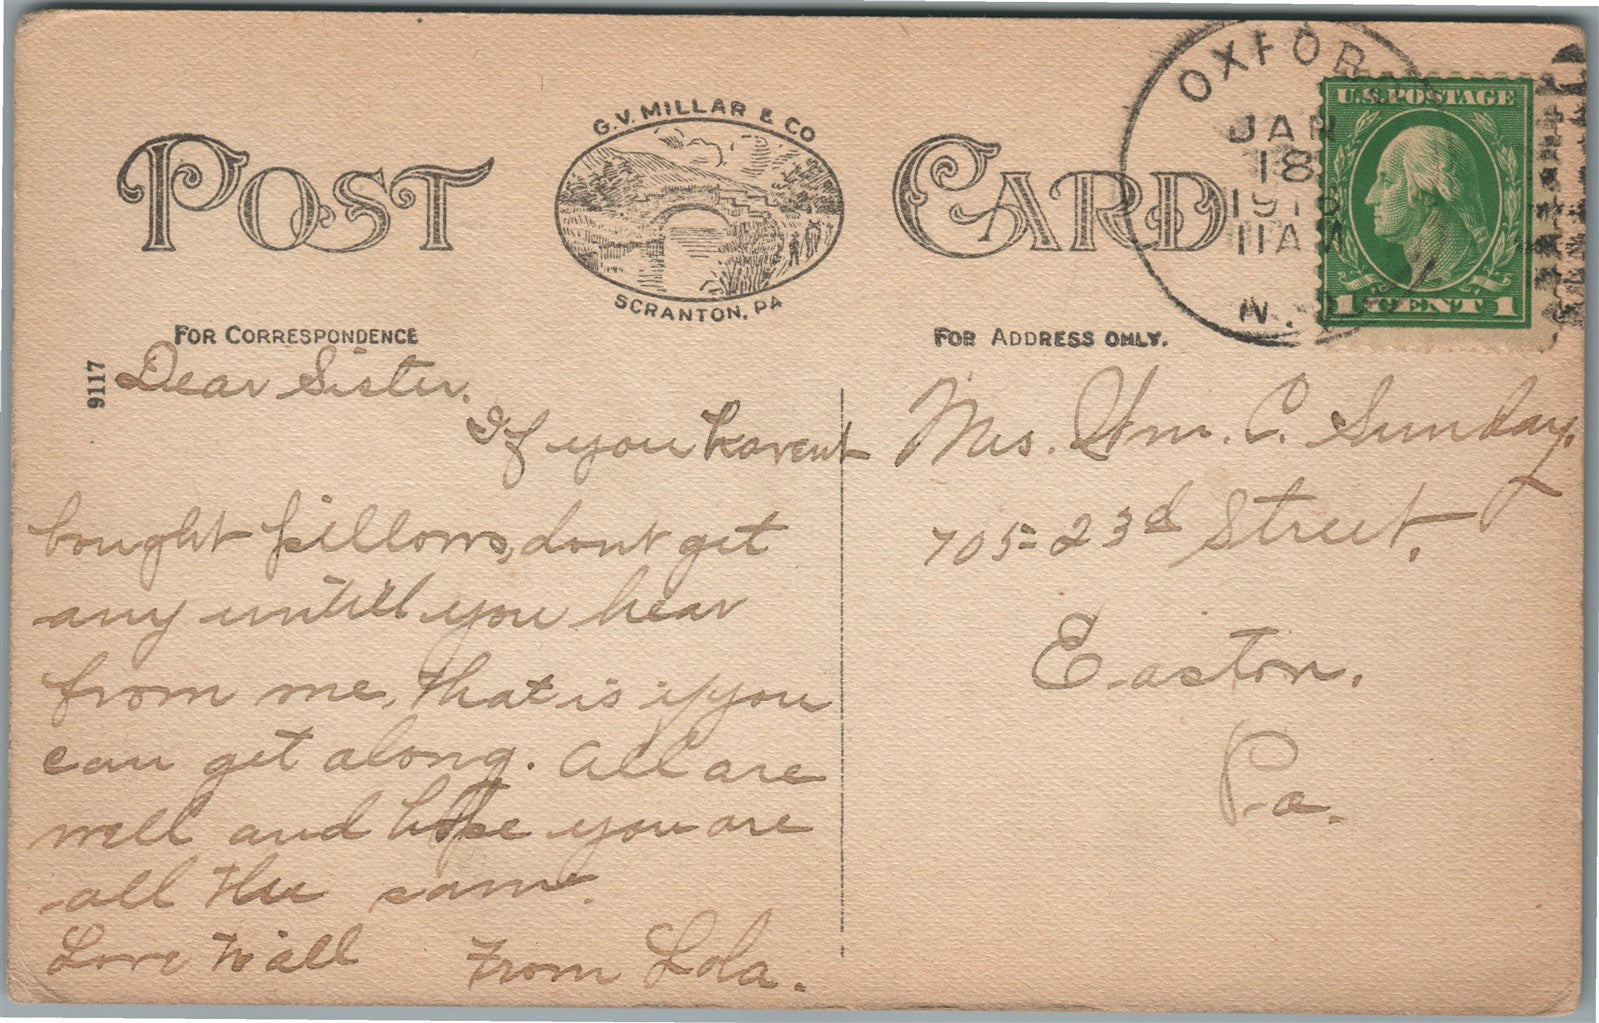 POST CARD
G.V. MILLAR & CO
SCRANTON, PA
OXFOR
JAN
18
11 AM
N.
U.S. POSTAGE
1 CENT 1
FOR CORRESPONDENCE
FOR ADDRESS ONLY.
9117
Dear Sister.
If you havent
bought pillows, dont get
any untill you hear
from me, that is if you
can get along. All are
well and hope you are
all the same.
Love to all From Lola.
Mrs. Wm. C. Sunday.
705 = 23d Street.
Easton.
Pa.